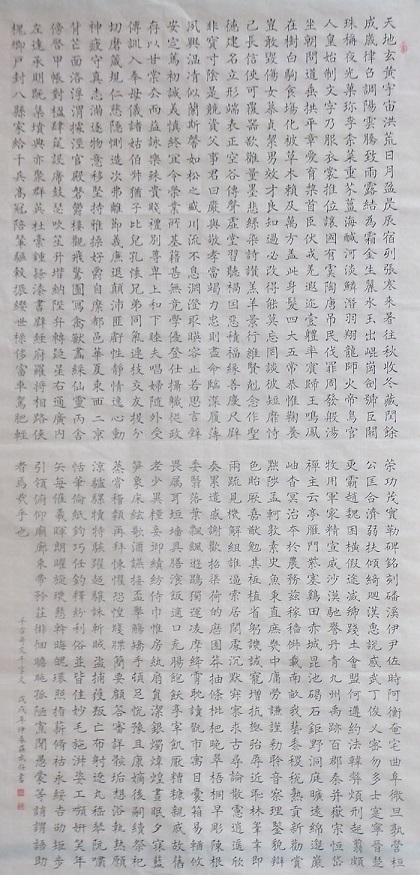 天地玄黃宇宙洪荒日月盈昃辰宿列張寒來暑往秋收冬藏閏餘
成歲律召調陽雲騰致雨露結為霜金生麗水玉出崐崗劍號巨闕
珠稱夜光菓珍李柰菜重芥薑海鹹河淡鱗潛羽翔龍師火帝鳥官
人皇始制文字乃服衣裳推位讓國有虞陶唐弔民伐罪周發殷湯
坐朝問道垂拱平章愛育黎首臣伏戎羌遐邇壹體率賓歸王鳴鳳
在樹白駒食場化被草木賴及萬方蓋此身髮四大五常恭惟鞠養
豈敢毀傷女慕貞絜男效才良知過必改得能莫忘罔談彼短靡恃
己長信使可覆器欲難量墨悲絲染詩讚羔羊景行維賢剋念作聖
德建名立形端表正空谷傳聲虛堂習聽禍因惡積福緣善慶尺璧
非寶寸陰是競資父事君曰嚴與敬孝當竭力忠則盡命臨深履薄
夙興溫凊似蘭斯馨如松之盛川流不息淵澄取映容止若思言辭
安定篤初誠美慎終宜令榮業所基藉甚無竟學優登仕攝職從政
存以甘棠去而益詠樂殊貴賤禮別尊卑上和下睦夫唱婦隨外受
傅訓入奉母儀諸姑伯叔猶子比兒孔懷兄弟同氣連枝交友投分
切磨箴規仁慈隱惻造次弗離節義廉退顛沛匪虧性靜情逸心動
神疲守真志滿逐物意移堅持雅操好爵自縻都邑華夏東西二京
背芒面洛浮渭據涇宮殿磐鬱樓觀飛驚圖寫禽獸畫綵仙靈丙舍
傍啓甲帳對楹肆筵設席鼓瑟吹笙升堦納陛弁轉疑星右通廣內
左達承明既集墳典亦聚群英杜稾鍾隸漆書壁經府羅將相路俠
槐卿戶封八縣家給千兵高冠陪輦驅轂振纓世祿侈富車駕肥輕
榮功茂實勒碑銘刻磻溪伊尹佐時阿衡奄宅曲阜微旦孰營桓
公匡合濟弱扶傾綺迴漢惠說感武丁俊乂密勿多士寔寧晉楚
更霸趙魏困橫假途滅虢踐土會盟何遵約法韓弊煩刑起翦頗
牧用軍最精宣威沙漠馳譽丹青九州禹跡百郡秦并嶽宗恒岱
禪主云亭雁門紫塞雞田赤城昆池碣石鉅野洞庭曠遠綿邈巖
岫杳冥治本於農務茲稼穡俶載南畝我藝黍稷稅熟貢新勸賞
黜陟孟軻敦素史魚秉直庶幾中庸勞謙謹敕聆音察理鑒貌辯
色貽厥嘉猷勉其祗植省躬譏誡寵增抗極殆辱近恥林睾幸即
兩疏見機解組誰逼索居閑處沉默寂寥求古尋論散慮逍遙欣
奏累遣慼謝歡招渠荷的歷園莽抽條枇杷晚翠梧桐早彫陳根
委翳落葉飄颻遊鵾獨運凌摩絳霄耽讀翫市寓目囊箱易輶攸
畏屬耳垣墻具膳飡飯適口充腸飽飫享宰飢厭糟糠親戚故舊
老少異糧妾御績紡侍巾帷房紈扇員潔銀燭煒煌晝眠夕寐藍
笋象床絃歌酒讌接杯舉觴矯手頓足悅豫且康嫡後嗣續祭祀
蒸嘗稽顙再拜悚懼恐惶牋牒簡要顧答審詳骸垢想浴執熱願
涼驢騾犢特駭躍超驤誅斬賊盜捕獲叛亡布射遼丸嵇琴阮嘯
恬筆倫紙鈞巧任釣釋紛利俗並皆佳妙毛施淑姿工顰妍笑年
矢每催羲暉朗曜璇璣懸斡晦魄環照指薪脩祜永綏吉劭矩步
引領俯仰廊廟束帶矜莊徘徊瞻眺孤陋寡聞愚蒙等誚謂語助
者焉哉乎也
千古奇文千字文 戊戌年仲春 書